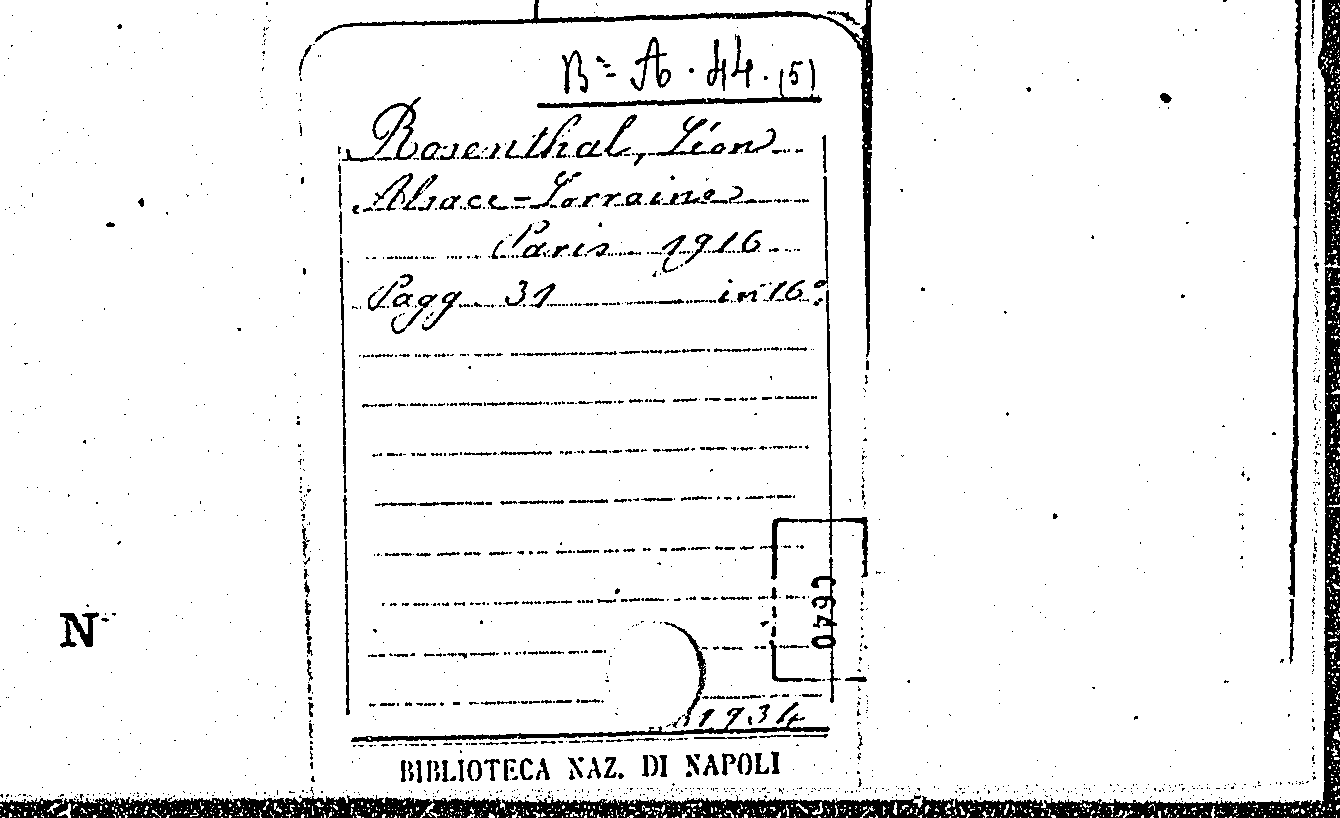 B= A. 44. (5)
Rosenthal, Léon
Alsace-Lorraine
Paris 1916
Pagg. 31 in 16°.
C640
N
1934
BIBLIOTECA NAZ. DI NAPOLI